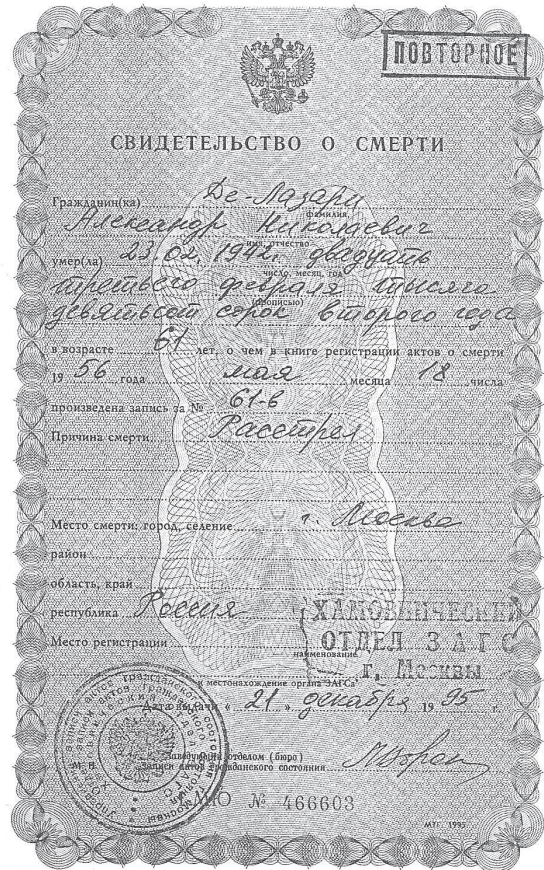 ПОВТОРНОЕ
СВИДЕТЕЛЬСТВО О СМЕРТИ
Гражданин(ка) Де-Лазари
фамилия
Александр Николаевич
имя, отчество
умер(ла) 23.02.1942г. двадцать
число, месяц, год
третьего февраля тысяча
(прописью)
девятьсот сорок второго года
в возрасте 61 лет, о чем в книге регистрации актов о смерти
19 56 года мая месяца 18 числа
произведена запись за № 61-в
Причина смерти Расстрел
Место смерти: город, селение г. Москва
район
область, край
республика Россия
ХАМОВНИЧЕСКИЙ
Место регистрации ОТДЕЛ ЗАГС
наименование
г. Москвы
и местонахождение органа ЗАГСа
Дата выдачи « 21 » декабря 19 95 г.
Заведующий отделом (бюро)
М.П. записи актов гражданского состояния
МЮ № 466603
МТГ. 1995